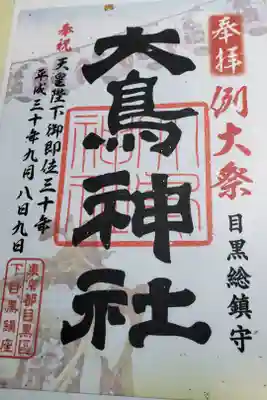 奉拝
例大祭
目黒総鎮守
大鳥神社
奉祝 天皇陛下御即位三十年
平成三十年九月八日九日
東京都目黒区
下目黒鎮座